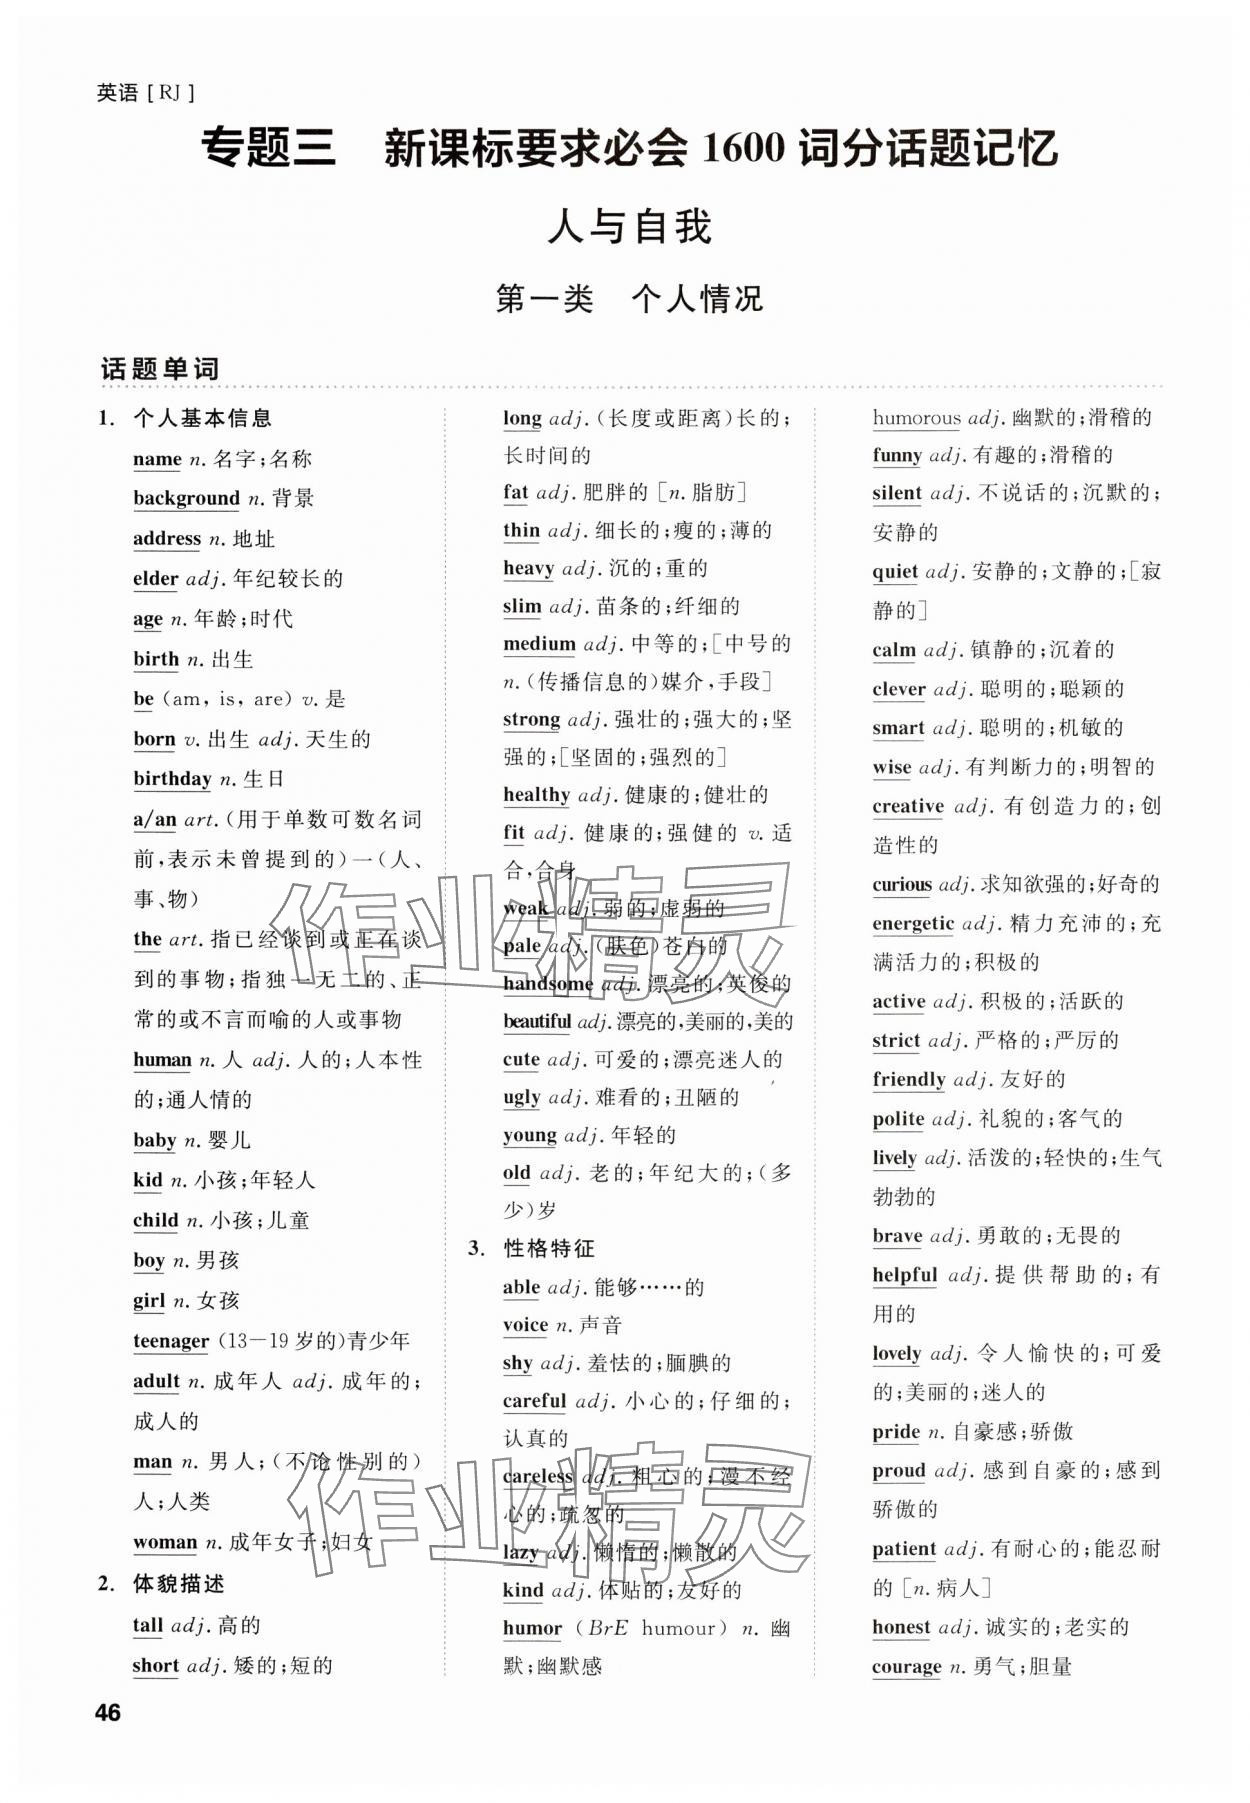 英语[RJ]
专题三 新课标要求必会1600词分话题记忆
人与自我
第一类 个人情况
话题单词
1. 个人基本信息
name n.名字;名称
background n.背景
address n.地址
elder adj.年纪较长的
age n.年龄;时代
birth n.出生
be(am, is, are) v.是
born v.出生 adj.天生的
birthday n.生日
a/an art.(用于单数可数名词
前,表示未曾提到的)一(人、
事、物)
the art.指已经谈到或正在谈
到的事物;指独一无二的、正
常的或不言而喻的人或事物
human n.人 adj.人的;人本性
的;通人情的
baby n.婴儿
kid n.小孩;年轻人
child n.小孩;儿童
boy n.男孩
girl n.女孩
teenager(13—19岁的)青少年
adult n.成年人 adj.成年的;
成人的
man n.男人;(不论性别的)
人;人类
woman n.成年女子;妇女
2. 体貌描述
tall adj.高的
short adj.矮的;短的
long adj.(长度或距离)长的;
长时间的
fat adj.肥胖的[n.脂肪]
thin adj.细长的;瘦的;薄的
heavy adj.沉的;重的
slim adj.苗条的;纤细的
medium adj.中等的;[中号的
n.(传播信息的)媒介,手段]
strong adj.强壮的;强大的;坚
强的;[坚固的;强烈的]
healthy adj.健康的;健壮的
fit adj.健康的;强健的 v.适
合,合身
weak adj.弱的;虚弱的
pale adj.(肤色)苍白的
handsome adj.漂亮的;英俊的
beautiful adj.漂亮的,美丽的,美的
cute adj.可爱的;漂亮迷人的
ugly adj.难看的;丑陋的
young adj.年轻的
old adj.老的;年纪大的;(多
少)岁
3. 性格特征
able adj.能够……的
voice n.声音
shy adj.羞怯的;腼腆的
careful adj.小心的;仔细的;
认真的
careless adj.粗心的;漫不经
心的;疏忽的
lazy adj.懒惰的;懒散的
kind adj.体贴的;友好的
humor(BrE humour) n.幽
默;幽默感
humorous adj.幽默的;滑稽的
funny adj.有趣的;滑稽的
silent adj.不说话的;沉默的;
安静的
quiet adj.安静的;文静的;[寂
静的]
calm adj.镇静的;沉着的
clever adj.聪明的;聪颖的
smart adj.聪明的;机敏的
wise adj.有判断力的;明智的
creative adj.有创造力的;创
造性的
curious adj.求知欲强的;好奇的
energetic adj.精力充沛的;充
满活力的;积极的
active adj.积极的;活跃的
strict adj.严格的;严厉的
friendly adj.友好的
polite adj.礼貌的;客气的
lively adj.活泼的;轻快的;生气
勃勃的
brave adj.勇敢的;无畏的
helpful adj.提供帮助的;有
用的
lovely adj.令人愉快的;可爱
的;美丽的;迷人的
pride n.自豪感;骄傲
proud adj.感到自豪的;感到
骄傲的
patient adj.有耐心的;能忍耐
的[n.病人]
honest adj.诚实的;老实的
courage n.勇气;胆量
46
作业精灵
作业精灵